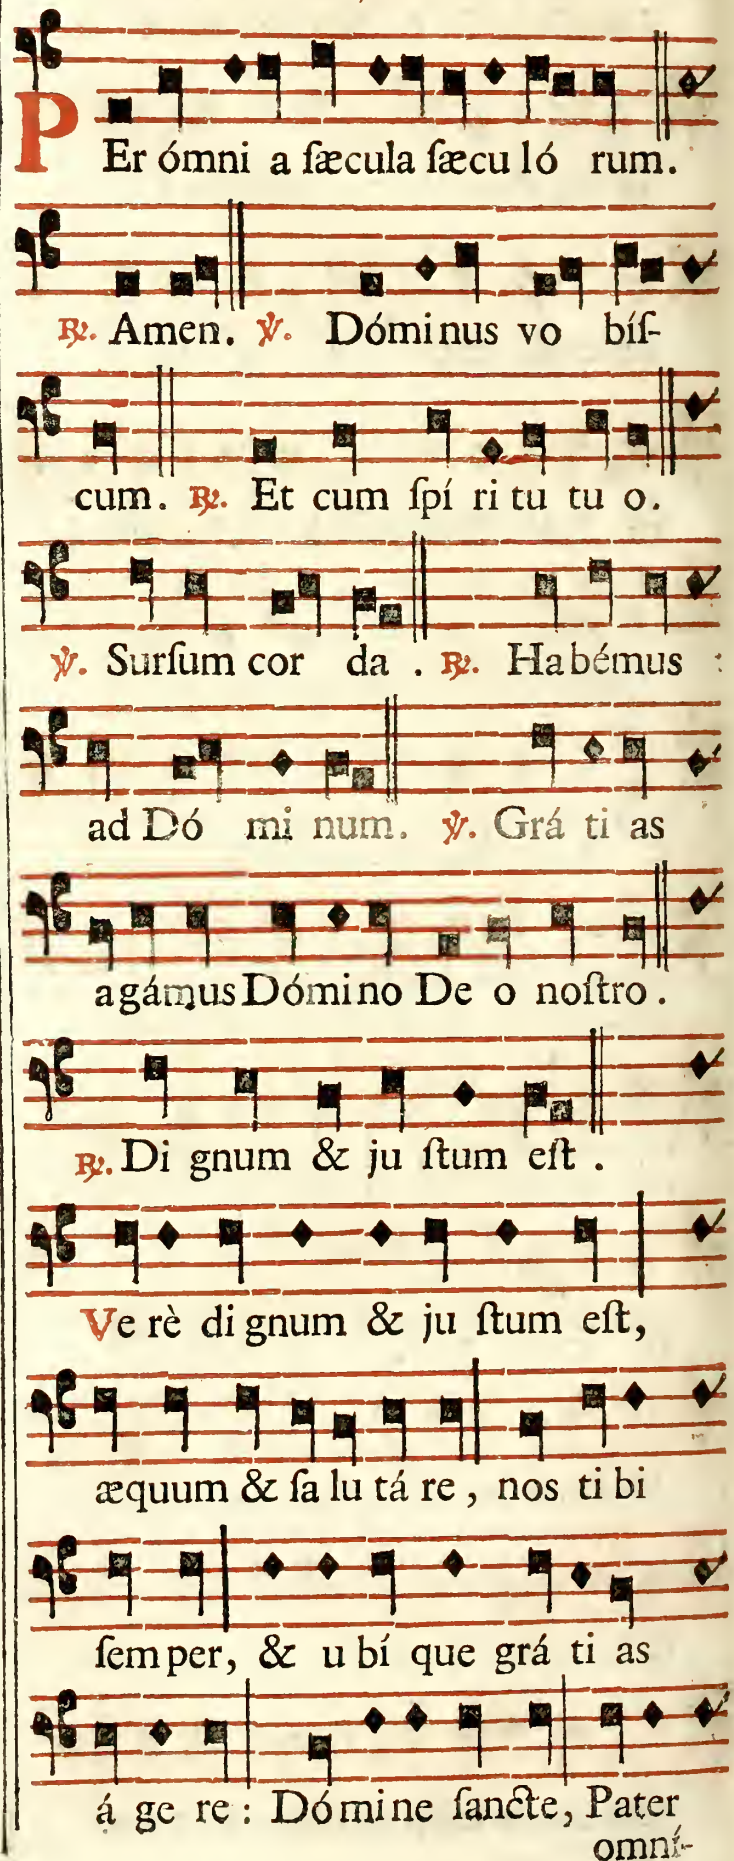 PEr ómni a ſæcula ſæcu ló rum.
℟. Amen. ℣. Dóminus vo bíſ-
cum. ℟. Et cum ſpí ri tu tu o.
℣. Surſum cor da . ℟. Habémus :
ad Dó mi num. ℣. Grá ti as
agámus Dómino De o noſtro .
℟. Di gnum & ju ſtum eſt .
Ve rè di gnum & ju ſtum eſt,
æquum & ſa lu tá re , nos ti bi
ſemper, & u bí que grá ti as
á ge re : Dómine ſancte, Pater
omní-